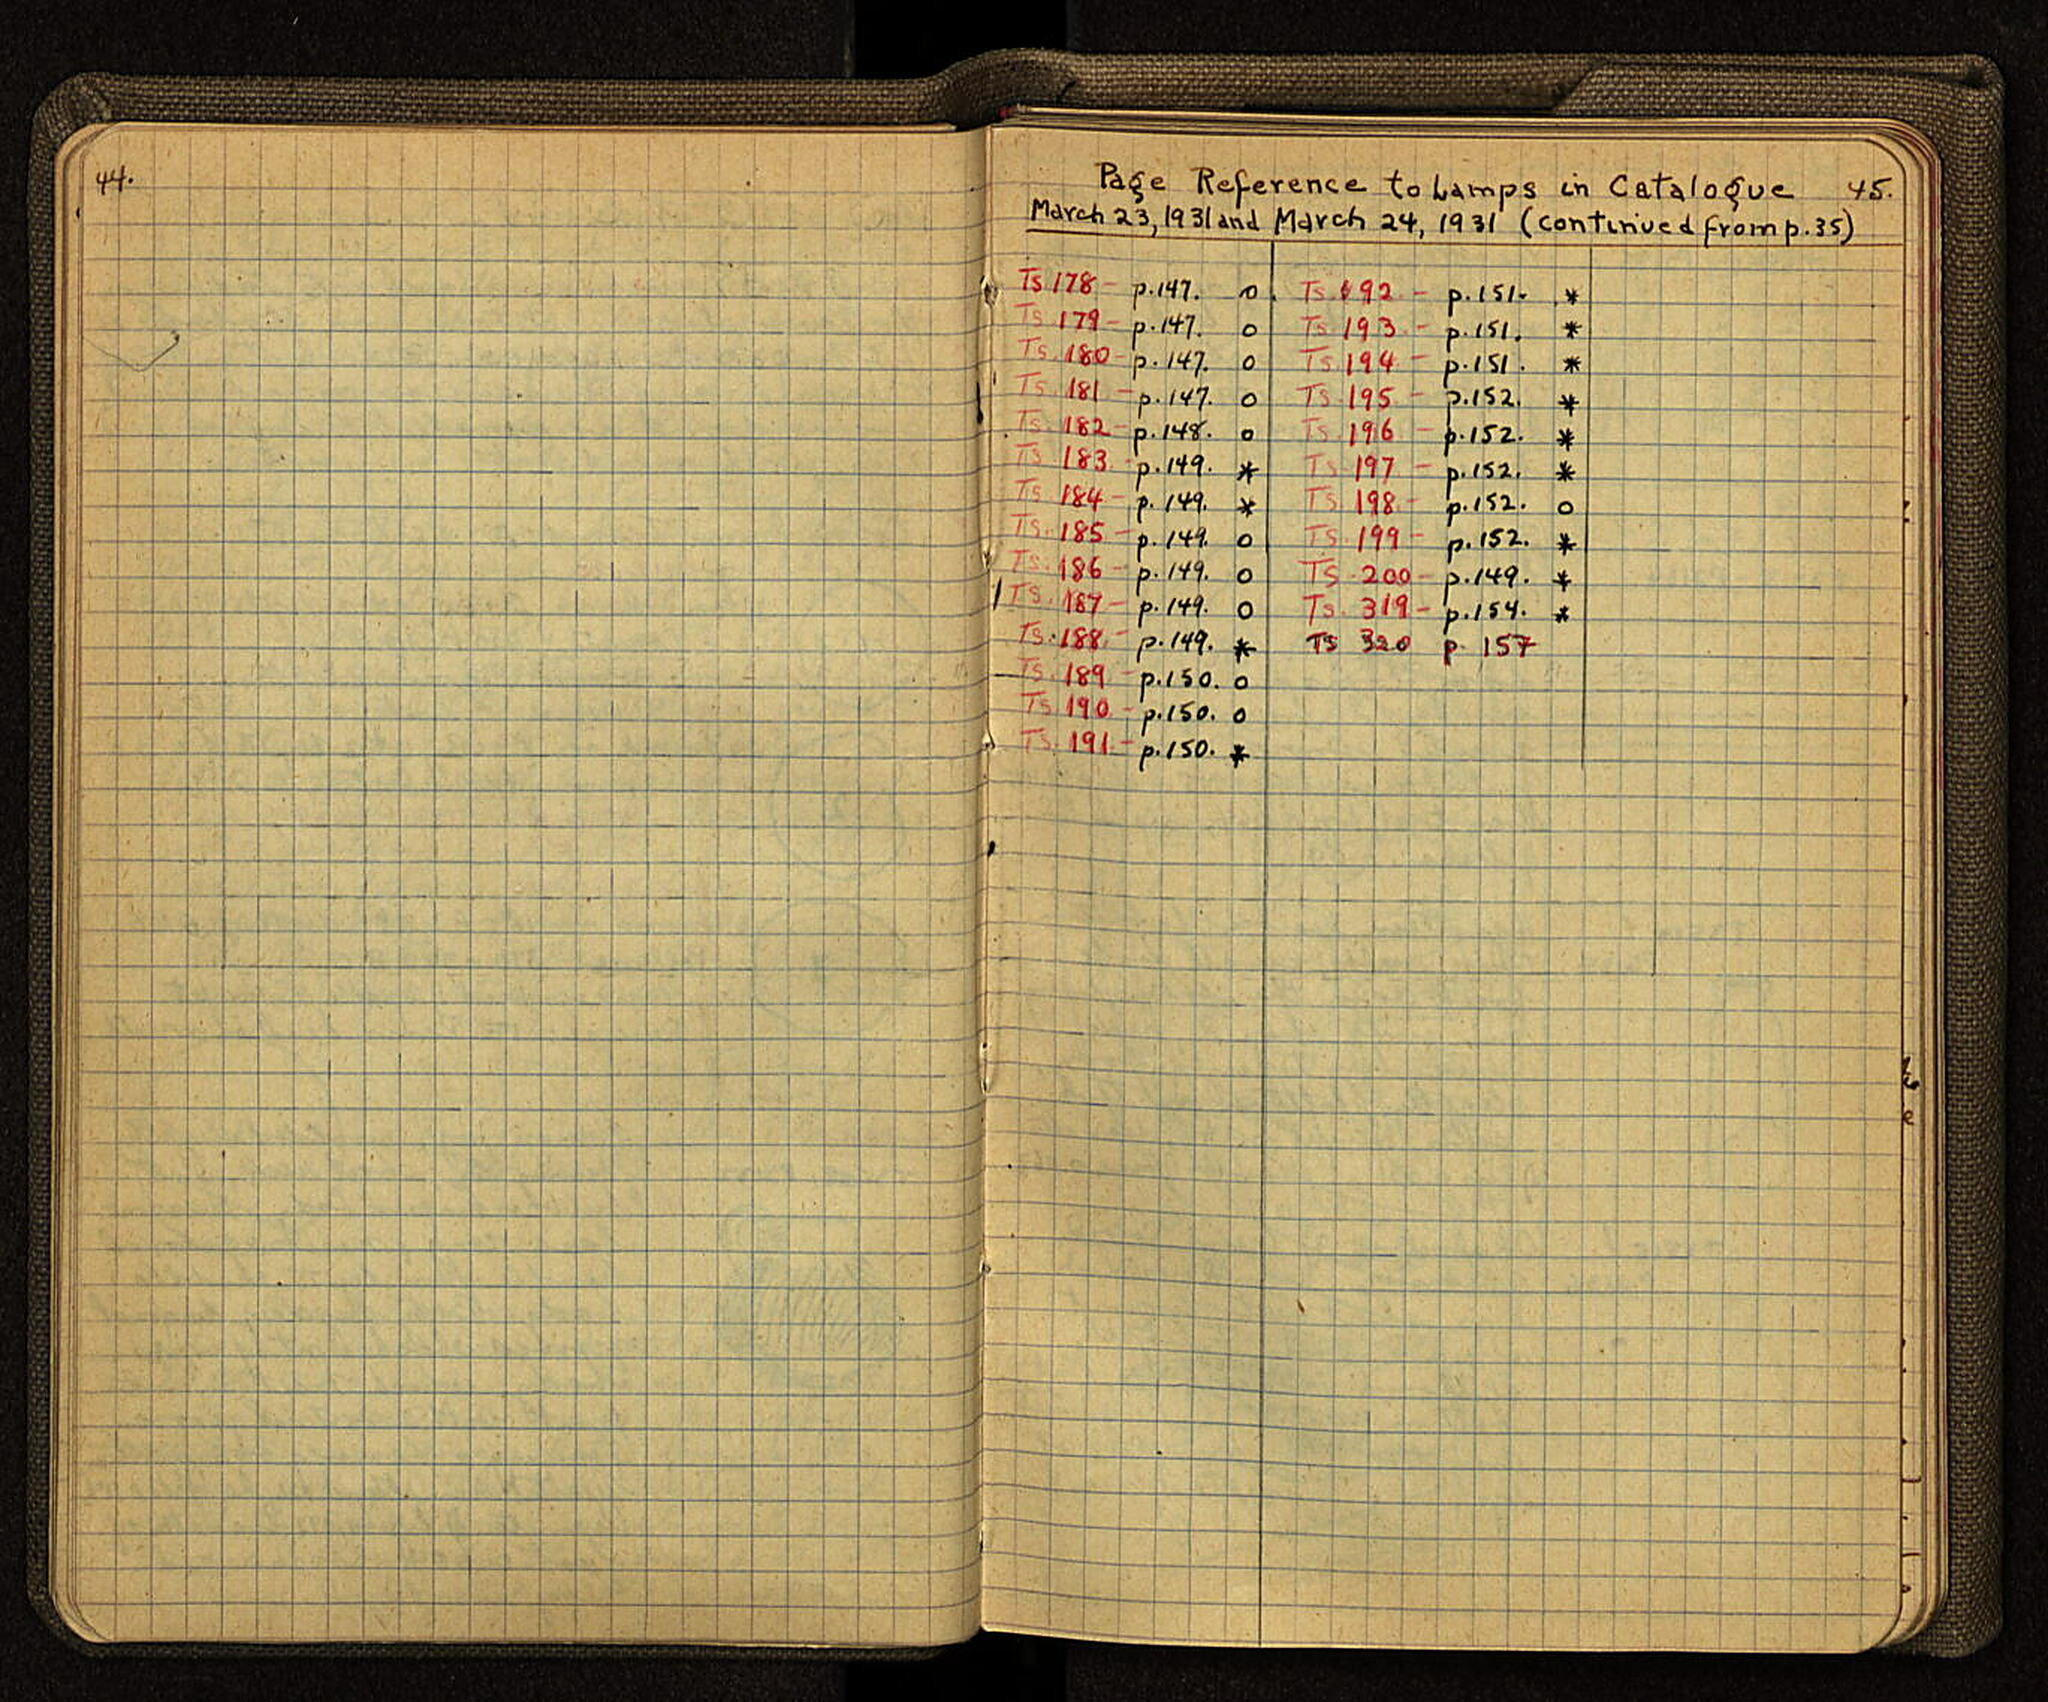 44.
Page Reference to Lamps in Catalogue 45.
March 23, 1931 and March 24, 1931 (continued from p. 35)
Ts 178 - p. 147. o
Ts 179 - p. 147. o
Ts. 180 - p. 147. o
Ts. 181 - p. 147. o
Ts. 182 - p. 148. o
Ts 183 - p. 149. *
Ts 184 - p. 149. *
Ts. 185 - p. 149. o
Ts. 186 - p. 149. o
Ts. 187 - p. 149. o
Ts. 188 - p. 149. *
Ts. 189 - p. 150. o
Ts 190 - p. 150. o
Ts. 191 - p. 150. *
Ts. 192 - p. 151. *
Ts. 193 - p. 151. *
Ts. 194 - p. 151. *
Ts. 195 - p. 152. *
Ts. 196 - p. 152. *
Ts. 197 - p. 152. *
Ts. 198 - p. 152. o
Ts. 199 - p. 152. *
Ts. 200 - p. 149. *
Ts. 319 - p. 154. *
Ts 320 p. 157